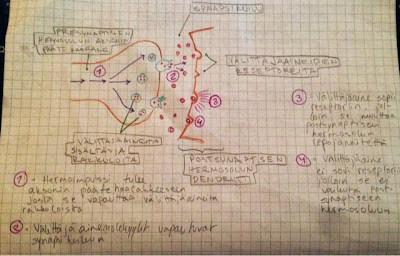 SYNAPSIRAKO
PRESYNAPTISEN
HERMOSOLUN AKSONIN
PÄÄTEHAARAKE
VÄLITTÄJÄAINEIDEN
RESEPTOREITA
1
2
3
4
VÄLITTÄJÄAINEITA
SISÄLTÄVIÄ
RAKKULOITA
POSTSYNAPTISEN
HERMOSOLUN
DENDRIITTI
3 - Välittäjäaine sopii
reseptoriin, jol-
loin se muuttaa
postsynaptisen
hermosolun
lepojännitettä
4 - Välittäjäaine
ei sovi reseptoriin
jolloin se ei
vaikuta post-
synaptiseen
hermosoluun
1 - Hermoimpulssi tulee
aksonin päätehaarakkeeseen
josta se vapauttaa välittäjäaineita
rakkuloista
2 - Välittäjäainemolekyylit vapautuvat